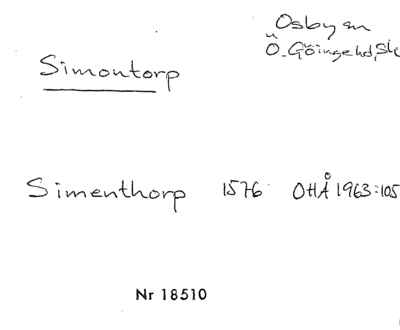 Osby sn
Ö. Göinge hd, Sk
Simontorp
Simenthorp 1576 OHÅ 1963:105
Nr 18510